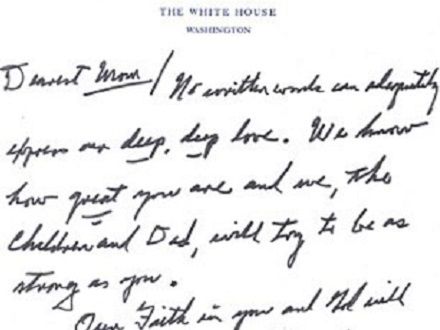 THE WHITE HOUSE
WASHINGTON
Dearest Mom / No written words can adequately
express our deep, deep love. We know
how great you are and we, the
Children and Dad, will try to be as
strong as you.
Our Faith in you and God will